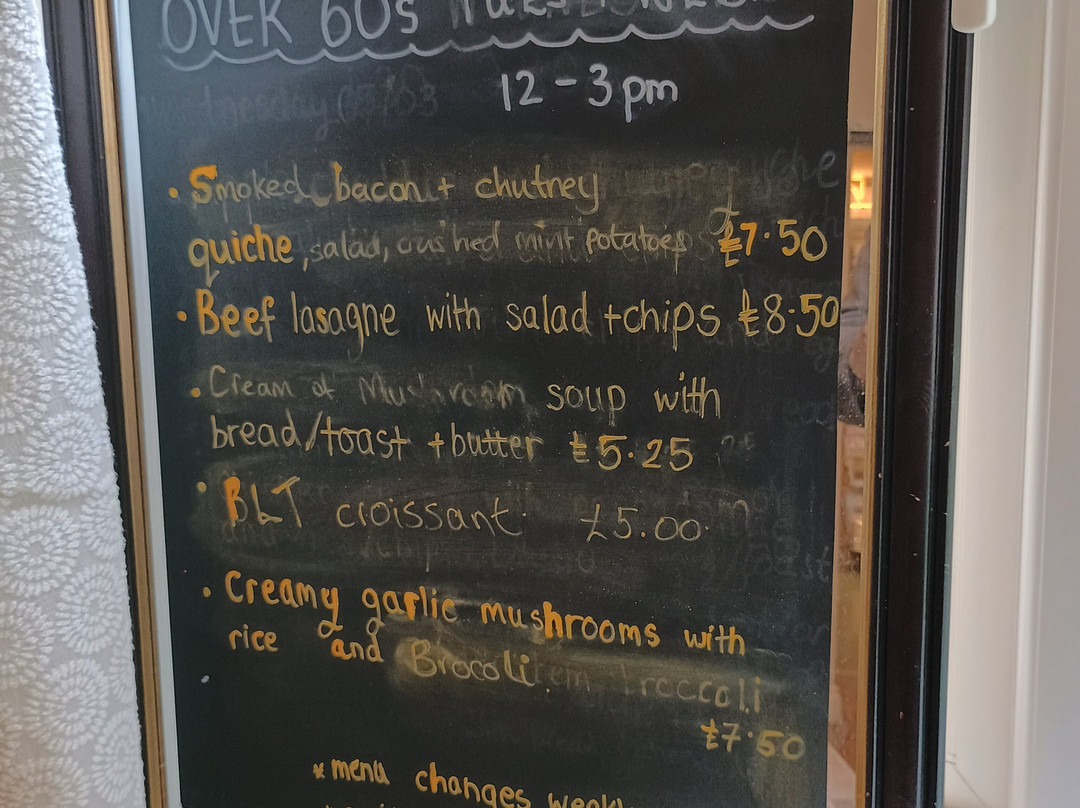 OVER 60s
12-3pm
• Smoked bacon + chutney
quiche, salad, crushed mint potatoes £7.50
• Beef lasagne with salad + chips £8.50
• Cream of Mushroom soup with
bread/toast + butter £5.25
• BLT croissant £5.00
• Creamy garlic mushrooms with
rice and Brocoli
£7.50
* menu changes weekly